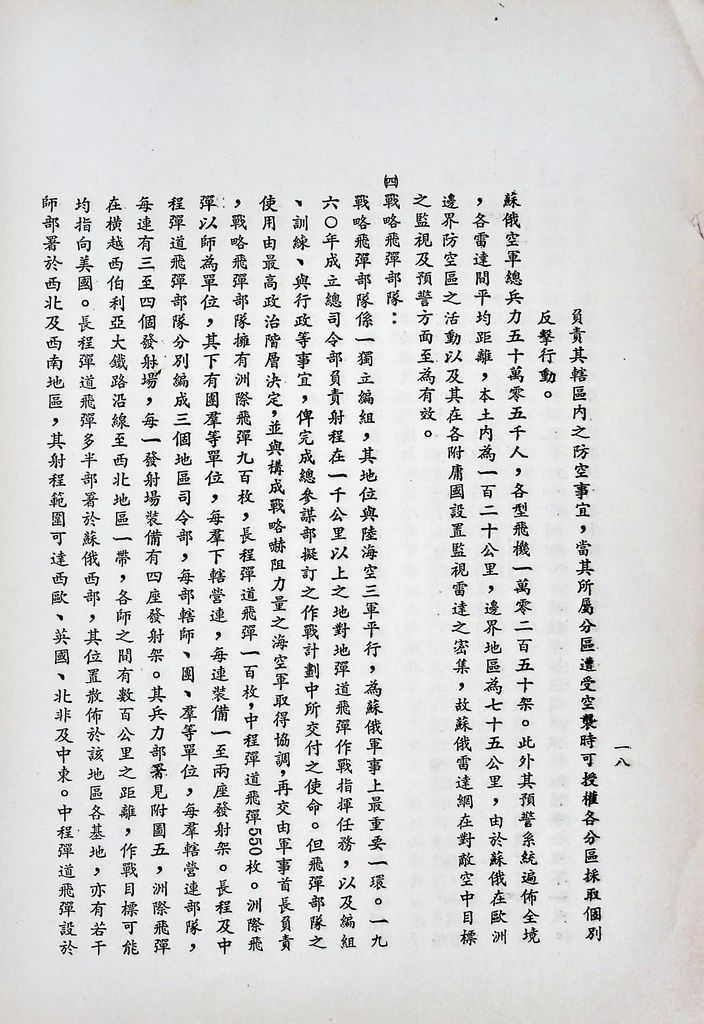 一八
負責其轄區內之防空事宜，當其所屬分區遭受空襲時可授權各分區採取個別
反擊行動。
蘇俄空軍總兵力五十萬零五千人，各型飛機一萬零二百五十架。此外其預警系統遍佈全境
，各雷達間平均距離，本土內為一百二十公里，邊界地區為七十五公里，由於蘇俄在歐洲
邊界防空區之活動以及其在各附庸國設置監視雷達之密集，故蘇俄雷達網在對敵空中目標
之監視及預警方面至為有效。
㈣戰略飛彈部隊：
戰略飛彈部隊係一獨立編組，其地位與陸海空三軍平行，為蘇俄軍事上最重要一環。一九
六〇年成立總司令部負責射程在一千公里以上之地對地彈道飛彈作戰指揮任務，以及編組
、訓練、與行政等事宜，俾完成總參謀部擬訂之作戰計劃中所交付之使命。但飛彈部隊之
使用由最高政治階層決定，並與構成戰略嚇阻力量之海空軍取得協調，再交由軍事首長負責
，戰略飛彈部隊擁有洲際飛彈九百枚，長程彈道飛彈一百枚，中程彈道飛彈550枚。洲際飛
彈以師為單位，其下有團羣等單位，每羣下轄營連，每連裝備一至兩座發射架。長程及中
程彈道飛彈部隊分別編成三個地區司令部，每部轄師、團、羣等單位，每羣轄營連部隊，
每連有三至四個發射場，每一發射場裝備有四座發射架。其兵力部署見附圖五，洲際飛彈
在橫越西伯利亞大鐵路沿線至西北地區一帶，各師之間有數百公里之距離，作戰目標可能
均指向美國。長程彈道飛彈多半部署於蘇俄西部，其位置散佈於該地區各基地，亦有若干
師部署於西北及西南地區，其射程範圍可達西歐、英國、北非及中東。中程彈道飛彈設於